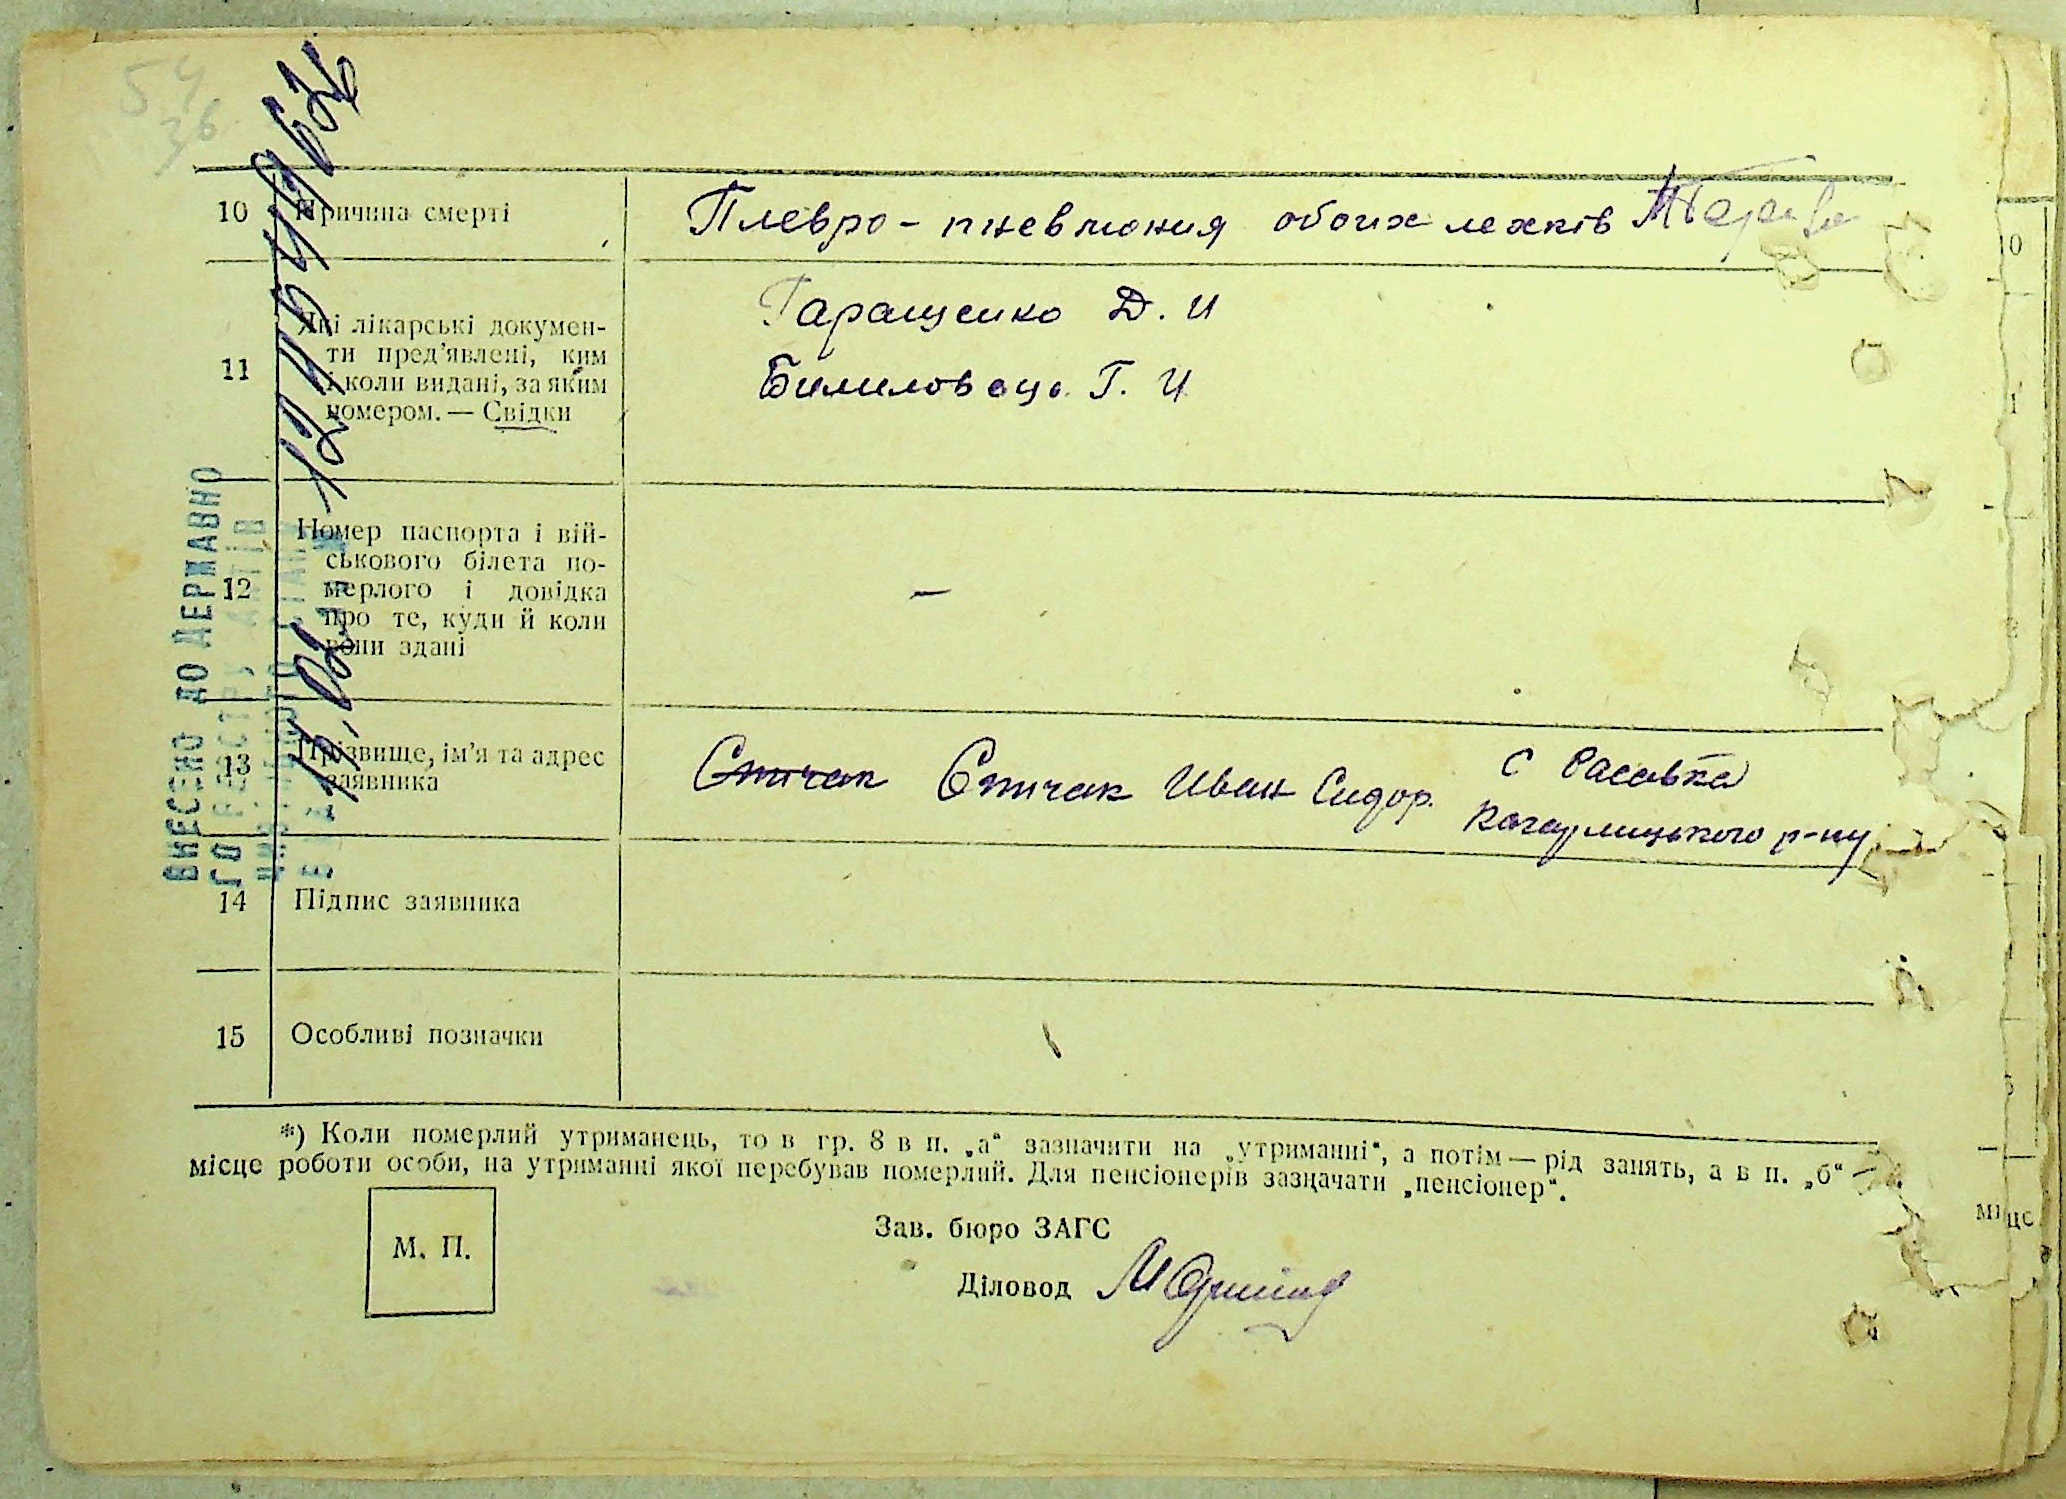 54
36
10 Причина смерті Плевро-пневмония обоих лехків
11 Які лікарські докумен-
ти пред'явлені, ким
і коли видані, за яким
номером. — Свідки
Гаращенко Д. И
Билиловець Г. И
12 Номер паспорта і вій-
ськового білета по-
мерлого і довідка
про те, куди й коли
вони здані
—
13 Прізвище, ім'я та адрес
заявника
Спичак Спичак Иван Сидор. с Расавка
Кагарлицького р-ну
14 Підпис заявника
15 Особливі позначки
*) Коли померлий утриманець, то в гр. 8 в п. „а“ зазначити на „утриманні“, а потім — рід занять, а в п. „б“ —
місце роботи особи, на утриманні якої перебував померлий. Для пенсіонерів зазначати „пенсіонер“.
М. П.
Зав. бюро ЗАГС
Діловод
ВНЕСЕНО ДО ДЕРЖАВНО
ГО РЕЄСТРУ АКТІВ
ЦИВІЛЬНОГО СТАНУ